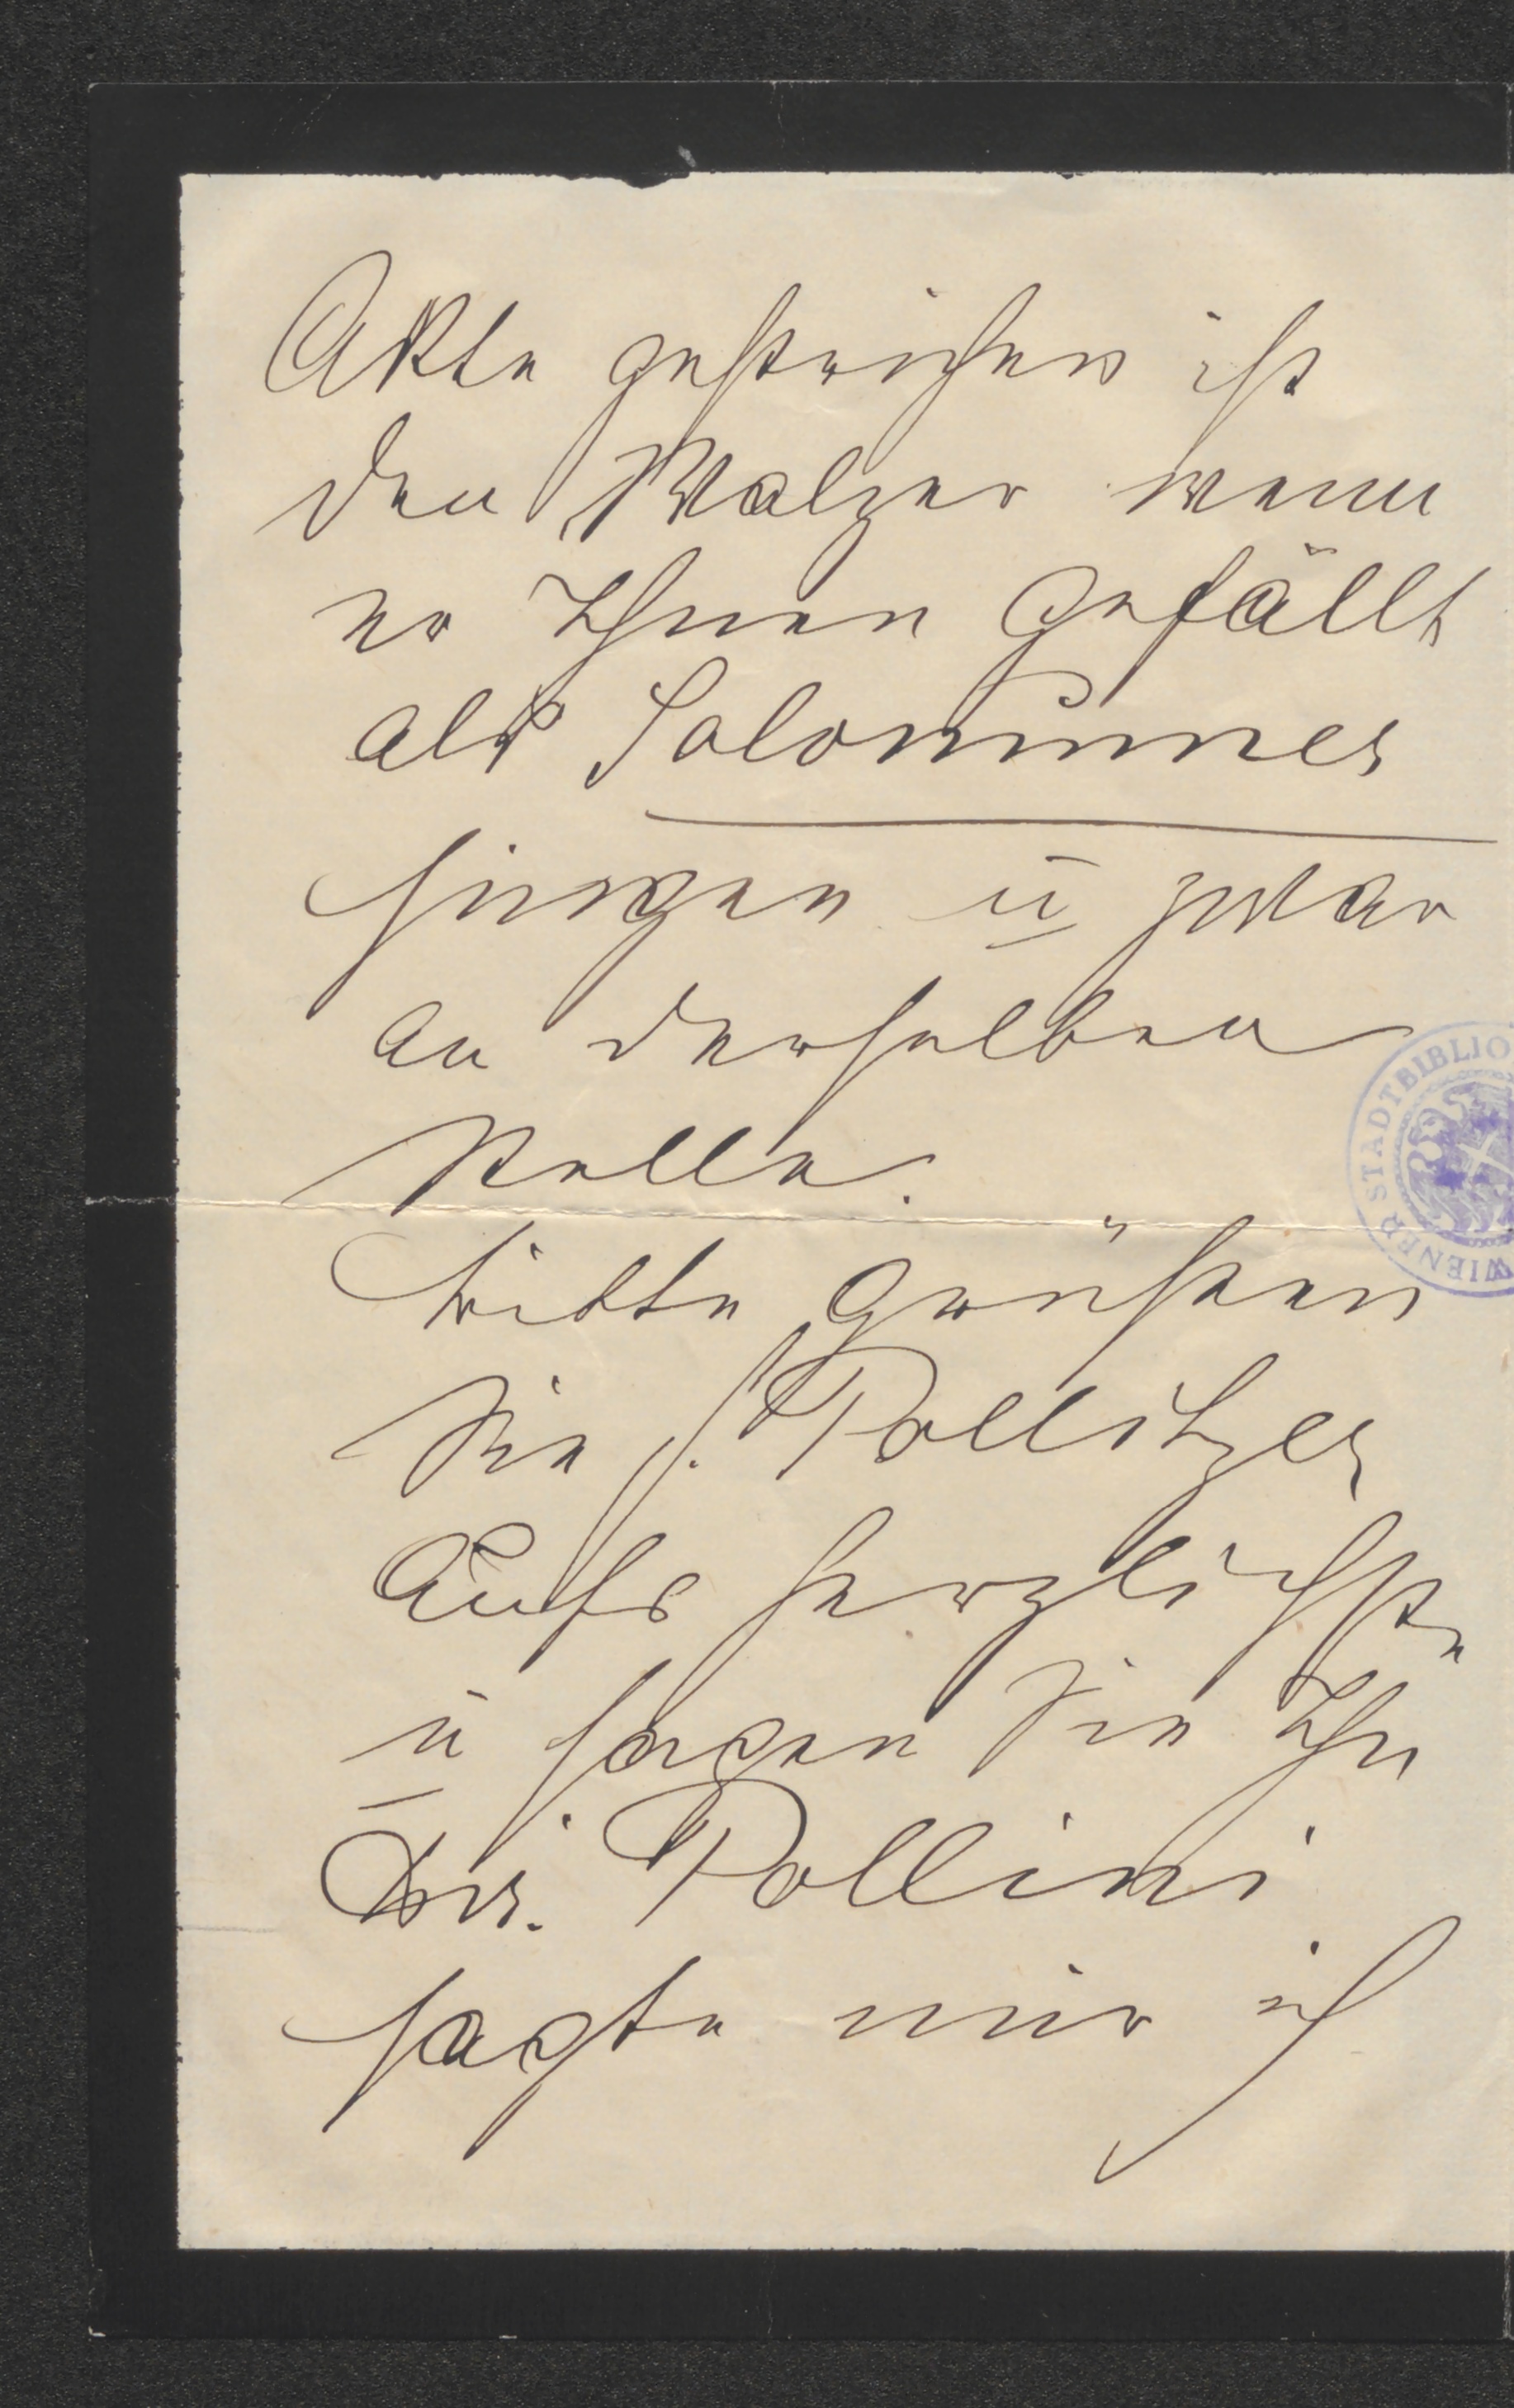 Akte gestrichen ist
den Walzer wenn
er Ihnen gefällt
als Solonummer
singen u zwar
an derselben
Stelle.
bitte grüßen
Sie H. Pollitzer
aufs herzlichste
u sagen Sie Ihm
Dir. Pollini
sagte mir ich
WIENER STADTBIBLIO